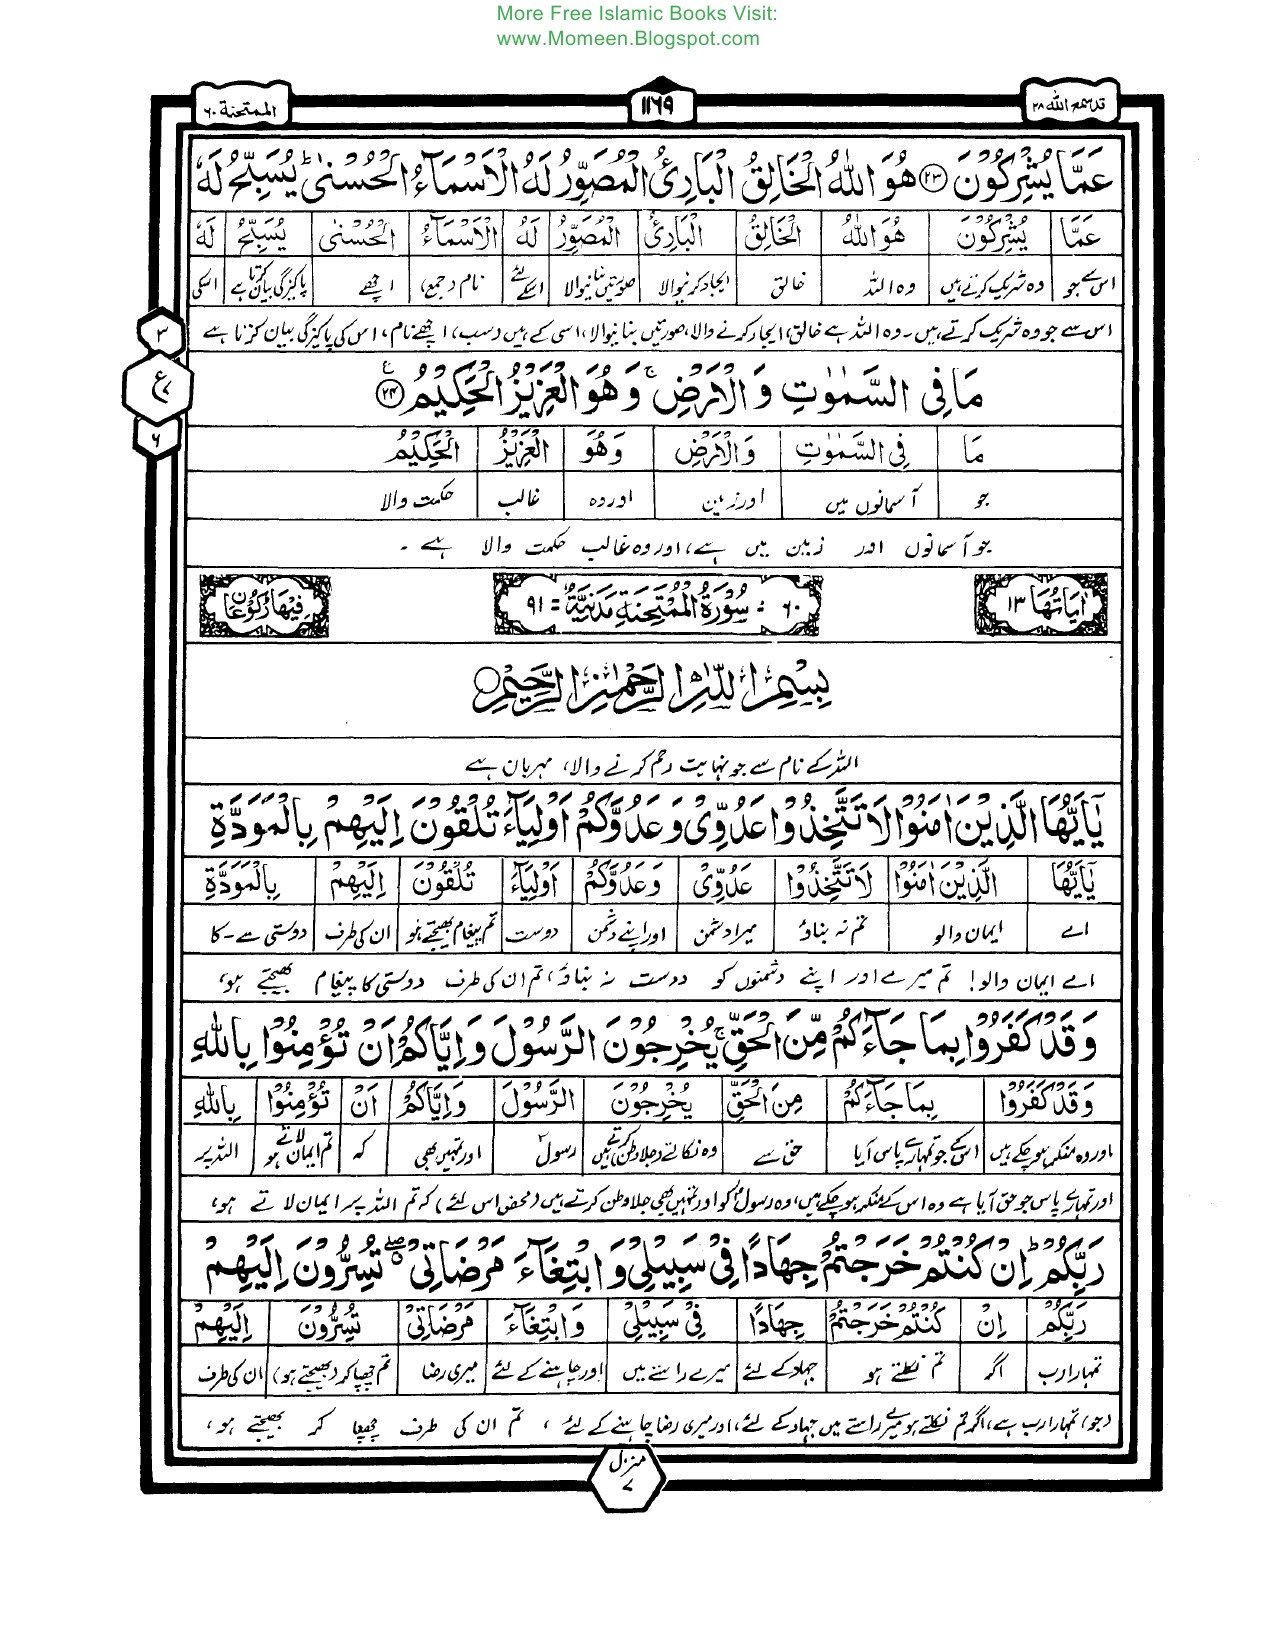 More Free Islamic Books Visit:
www.Momeen.Blogspot.com
قدسمع الله ۲۸
۱۱۶۹
الممتحنة ۶۰
عَمَّا يُشْرِكُوْنَ ۲۳ هُوَ اللّٰهُ الْخَالِقُ الْبَارِئُ الْمُصَوِّرُ لَهُ الْاَسْمَآءُ الْحُسْنٰى ؕ يُسَبِّحُ لَهٗ
عَمَّا يُشْرِكُوْنَ هُوَ اللّٰهُ الْخَالِقُ الْبَارِئُ الْمُصَوِّرُ لَهُ الْاَسْمَآءُ الْحُسْنٰى يُسَبِّحُ لَهٗ
اس سے جو وہ شریک کرتے ہیں وہ اللہ خالق ایجاد کرنیوالا صورتیں بنانیوالا اسکے لئے نام (جمع) اچھے پاکیزگی بیان کرتا ہے اسکی
اس سے جو وہ شریک کرتے ہیں۔ وہ اللہ ہے خالق، ایجاد کرنے والا، صورتیں بنانیوالا، اسی کے ہیں (سب) اچھے نام، اس کی پاکیزگی بیان کرتا ہے
۳
ع
۷
۶
مَا فِي السَّمٰوٰتِ وَ الْاَرْضِ ۚ وَ هُوَ الْعَزِيْزُ الْحَكِيْمُ ۲۴ ع
مَا فِي السَّمٰوٰتِ وَ الْاَرْضِ وَهُوَ الْعَزِيْزُ الْحَكِيْمُ
جو آسمانوں میں اور زمین اور وہ غالب حکمت والا
جو آسمانوں اور زمین میں ہے، اور وہ غالب حکمت والا ہے ۔
اٰيَاتُهَا ۱۳
۶۰ - سُوْرَةُ الْمُمْتَحِنَةِ مَدَنِيَّةٌ = ۹۱
فِيْهَا رُكُوْعَانِ
بِسْمِ اللّٰهِ الرَّحْمٰنِ الرَّحِيْمِ
اللہ کے نام سے جو نہایت رحم کرنے والا، مہربان ہے
يٰۤاَيُّهَا الَّذِيْنَ اٰمَنُوْا لَا تَتَّخِذُوْا عَدُوِّيْ وَ عَدُوَّكُمْ اَوْلِيَآءَ تُلْقُوْنَ اِلَيْهِمْ بِالْمَوَدَّةِ
يٰۤاَيُّهَا الَّذِيْنَ اٰمَنُوْا لَا تَتَّخِذُوْا عَدُوِّيْ وَ عَدُوَّكُمْ اَوْلِيَآءَ تُلْقُوْنَ اِلَيْهِمْ بِالْمَوَدَّةِ
اے ایمان والو تم نہ بناؤ میرا دشمن اور اپنے دشمن دوست تم پیغام بھیجتے ہو ان کی طرف دوستی سے ۔ کا
اے ایمان والو! تم میرے اور اپنے دشمنوں کو دوست نہ بناؤ، تم ان کی طرف دوستی کا پیغام بھیجتے ہو،
وَ قَدْ كَفَرُوْا بِمَا جَآءَكُمْ مِّنَ الْحَقِّ ۚ يُخْرِجُوْنَ الرَّسُوْلَ وَ اِيَّاكُمْ اَنْ تُؤْمِنُوْا بِاللّٰهِ
وَ قَدْ كَفَرُوْا بِمَا جَآءَكُمْ مِنَ الْحَقِّ يُخْرِجُوْنَ الرَّسُوْلَ وَ اِيَّاكُمْ اَنْ تُؤْمِنُوْا بِاللّٰهِ
اور وہ منکر ہو چکے ہیں اس کے جو تمہارے پاس آیا حق سے وہ نکالتے (جلاوطن کرتے) ہیں رسولؐ اور تمہیں بھی کہ تم ایمان لاتے ہو اللہ پر
اور تمہارے پاس جو حق آیا ہے وہ اس کے منکر ہو چکے ہیں، وہ رسولؐ کو اور تمہیں بھی جلاوطن کرتے ہیں (محض اس لئے) کہ تم اللہ پر ایمان لاتے ہو،
رَبِّكُمْ ؕ اِنْ كُنْتُمْ خَرَجْتُمْ جِهَادًا فِيْ سَبِيْلِيْ وَ ابْتِغَآءَ مَرْضَاتِيْ تُسِرُّوْنَ اِلَيْهِمْ
رَبِّكُمْ اِنْ كُنْتُمْ خَرَجْتُمْ جِهَادًا فِيْ سَبِيْلِيْ وَ ابْتِغَآءَ مَرْضَاتِيْ تُسِرُّوْنَ اِلَيْهِمْ
تمہارا رب اگر تم نکلتے ہو جہاد کے لئے میرے راستے میں اور چاہنے کے لئے میری رضا تم چھپا کر (بھیجتے ہو) ان کی طرف
(جو) تمہارا رب ہے، اگر تم نکلتے ہو میرے راستے میں جہاد کے لئے، اور میری رضا چاہنے کے لئے، تم ان کی طرف چھپا کر بھیجتے ہو،
منزل
۷